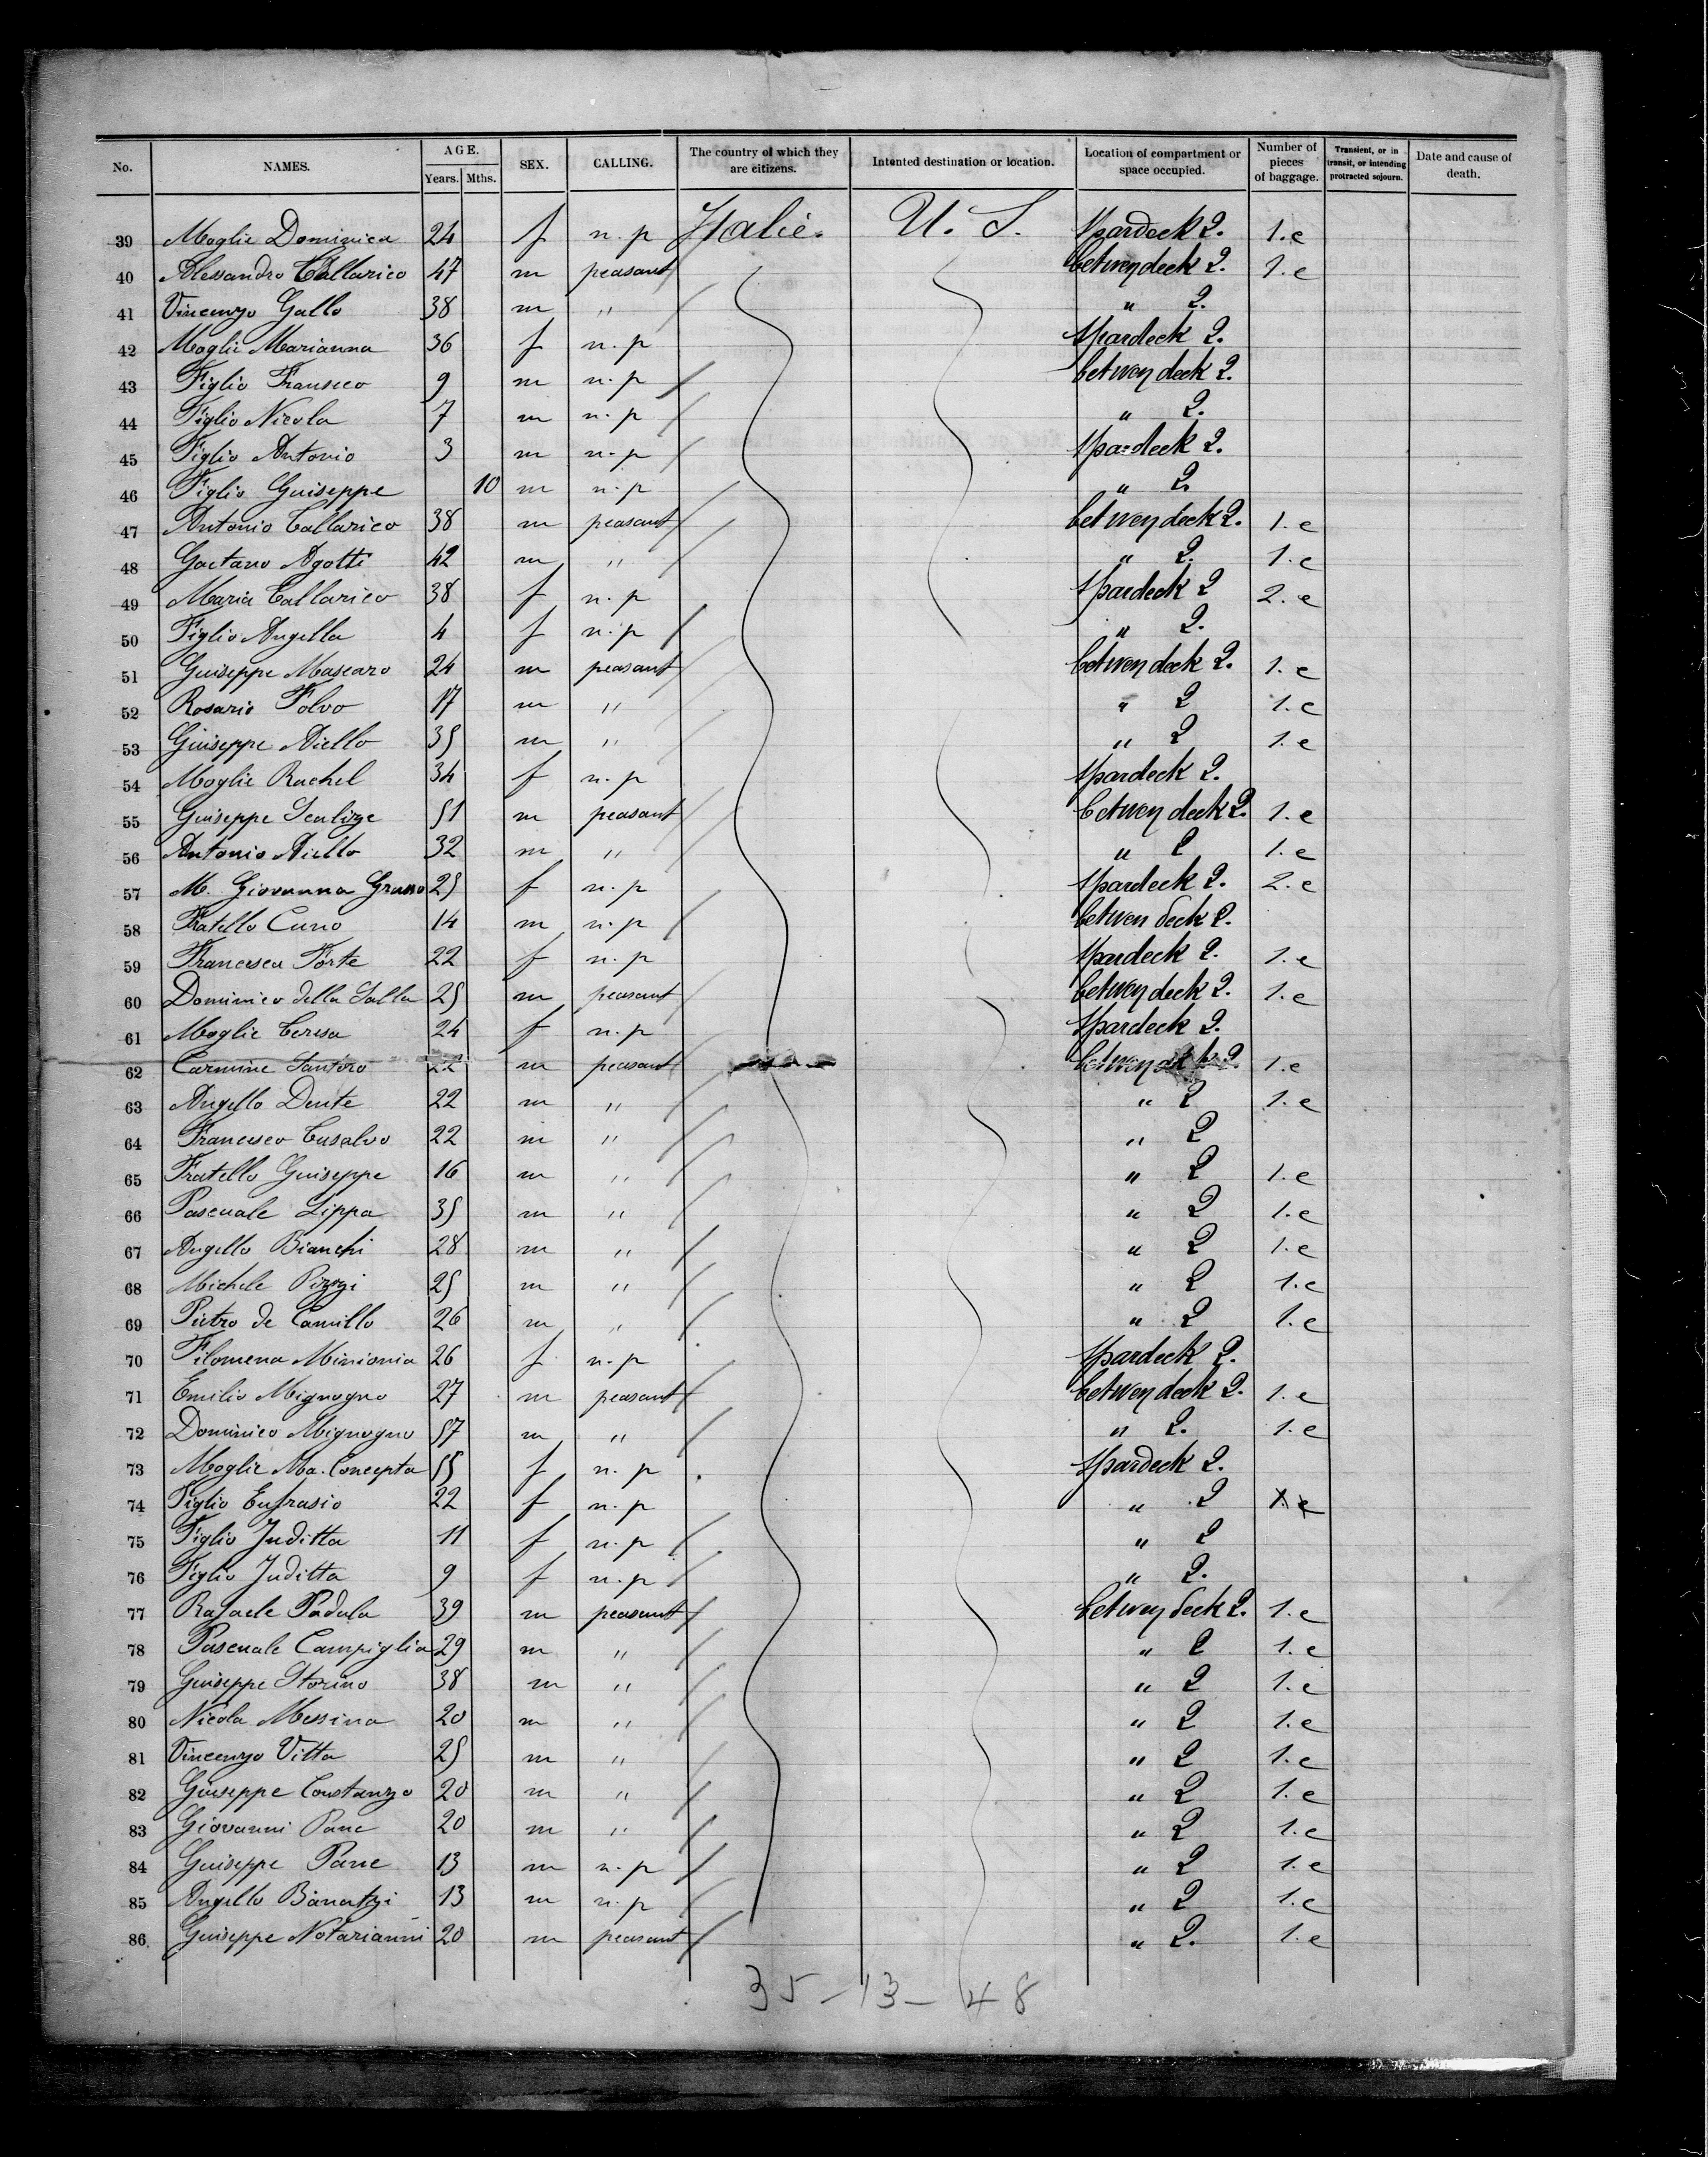 No. NAMES. AGE. Years. Mths. SEX. CALLING. The country of which they are citizens. Intented destination or location. Location of compartment or space occupied. Number of pieces of baggage. Transient, or in transit, or intending protracted sojourn. Date and cause of death.
39 Moglie Dominica 24 f n.p Italie. U. S. Spardeck 2. 1.c
40 Alessandro Tallarico 47 m peasant betwendeck 2. 1.c
41 Vincenzo Gallo 38 m " " 2.
42 Moglie Marianna 36 f n.p Spardeck 2.
43 Figlio Fransico 9 m n.p betwen deck 2.
44 Figlio Nicola 7 m n.p " 2.
45 Figlio Antonio 3 m n.p Spardeck 2.
46 Figlio Guiseppe 10 m n.p " 2.
47 Antonio Tallarico 38 m peasant betwen deck 2. 1.c
48 Gaetano Agotti 42 m " " 2. 1.c
49 Maria Tallarico 38 f n.p Spardeck 2 2.c
50 Figlio Angella 4 f n.p " 2.
51 Guiseppe Mascaro 24 m peasant betwen deck 2. 1.c
52 Rosario Folvo 17 m " " 2 1.c
53 Giuseppe Aiello 35 m " " 2 1.c
54 Moglie Rachel 34 f n.p Spardeck 2.
55 Guiseppe Scalize 51 m peasant betwen deck 2. 1.c
56 Antonio Aiello 32 m " " 2 1.c
57 M. Giovanna Grasso 25 f n.p Spardeck 2. 2.c
58 Fratello Cuno 14 m n.p betwen deck 2.
59 Francesca Forte 22 f n.p Spardeck 2. 1.c
60 Dominico della Salla 25 m peasant betwen deck 2. 1.c
61 Moglie Teresa 24 f n.p Spardeck 2.
62 Carmine Santoro 22 m peasant betwen deck 2. 1.c
63 Angello Dente 22 m " " 2 1.c
64 Francesco Cusalvo 22 m " " 2
65 Fratello Guiseppe 16 m " " 2 1.c
66 Pascuale Lippa 35 m " " 2 1.c
67 Angello Bianchi 28 m " " 2 1.c
68 Michele Pizzi 25 m " " 2 1.c
69 Pietro de Camillo 26 m " " 2 1.c
70 Filomena Minionia 26 f n.p Spardeck 2.
71 Emilio Mignogno 27 m peasant betwen deck 2. 1.c
72 Dominico Mignogno 57 m " " 2. 1.c
73 Moglie Ma. Concepta 55 f n.p Spardeck 2.
74 Figlio Eufrasio 22 f n.p " 2 1.c
75 Figlio Juditta 11 f n.p " 2
76 Figlio Juditta 9 f n.p " 2.
77 Rafaele Padula 39 m peasant betwen deck 2. 1.c
78 Pascuale Campiglia 29 m " " 2 1.c
79 Guiseppe Storino 38 m " " 2 1.c
80 Nicola Messina 20 m " " 2 1.c
81 Vincenzo Vitta 25 m " " 2 1.c
82 Guiseppe Constanzo 20 m " " 2 1.c
83 Giovanni Pane 20 m " " 2 1.c
84 Guiseppe Pane 13 m n.p " 2 1.c
85 Angello 13 m n.p " 2 1.c
86 Guiseppe Notarianni 20 m peasant " 2. 1.c
35 - 13 - 48